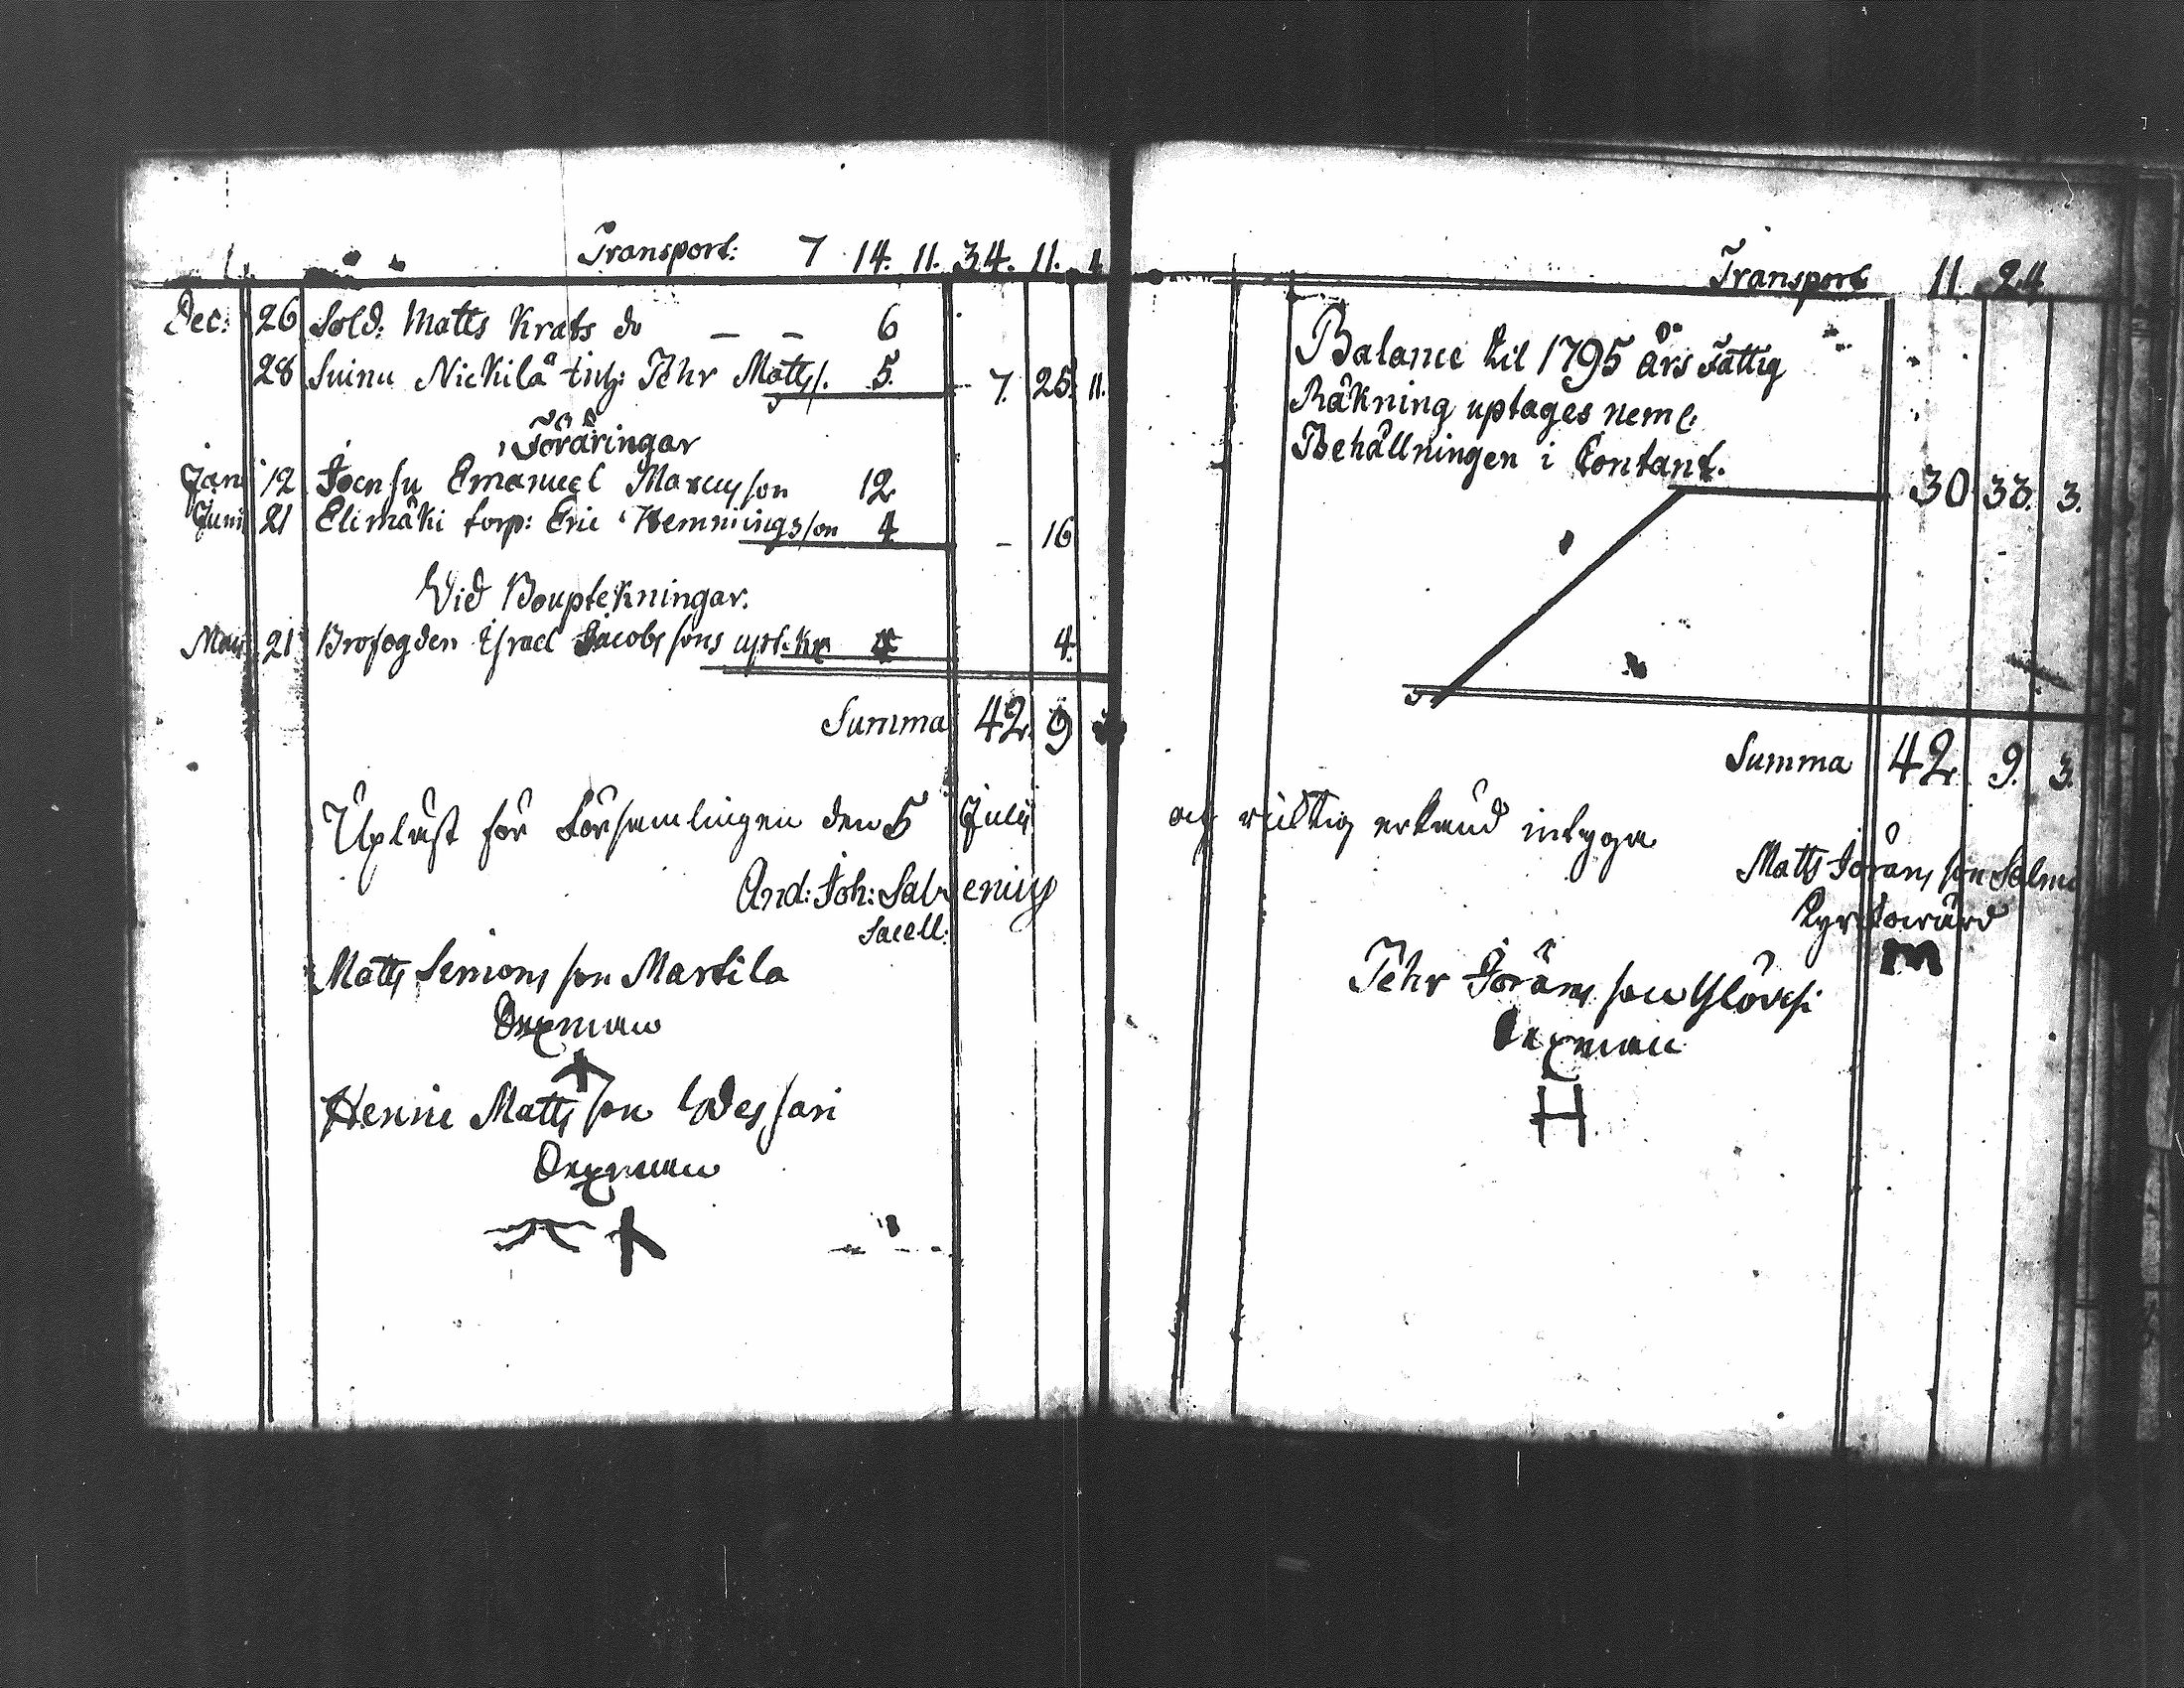 Transport: 7 14. 11. 34. 11. 4
Dec: 26 Sold: Matts Krats do — — 6
28 Suinu Nickilä Pehr Matts/. 5. 7. 25. 11.
Föräringar
Jan 12 Joensu Emanuel Marcusson 12
Juni 21 Elimäki torp: Eric Hemmingsson 4 - 16
Vid Bouptekningar.
Maii 21 Brofogden Israel Jacobssons 4 4.
Summa 42. 9
Upläst för Församlingen den 5 Julii
And: Joh: Salvenius
Sacell:
Matts Simonsson Martila
Sexman
Henric Mattsson Wessari
Sexman
Transport 11. 24
Balance til 1795 års Fattig
Räkning uptages neml.
Behållningen i Contant. 30 33. 3.
Summa 42. 9. 3.
och riktig erkänd intyga
Matts Jöransson Salmi
Kyrkowärd
m
Pehr Jöransson Ylöisi
Sexman
H